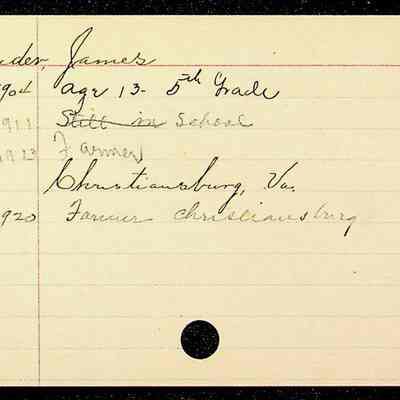 uder, James
904 age 13 - 5th Grade
911 Still in School
1913 Farmer
Christiansburg, Va.
920 Farmer Christiansburg